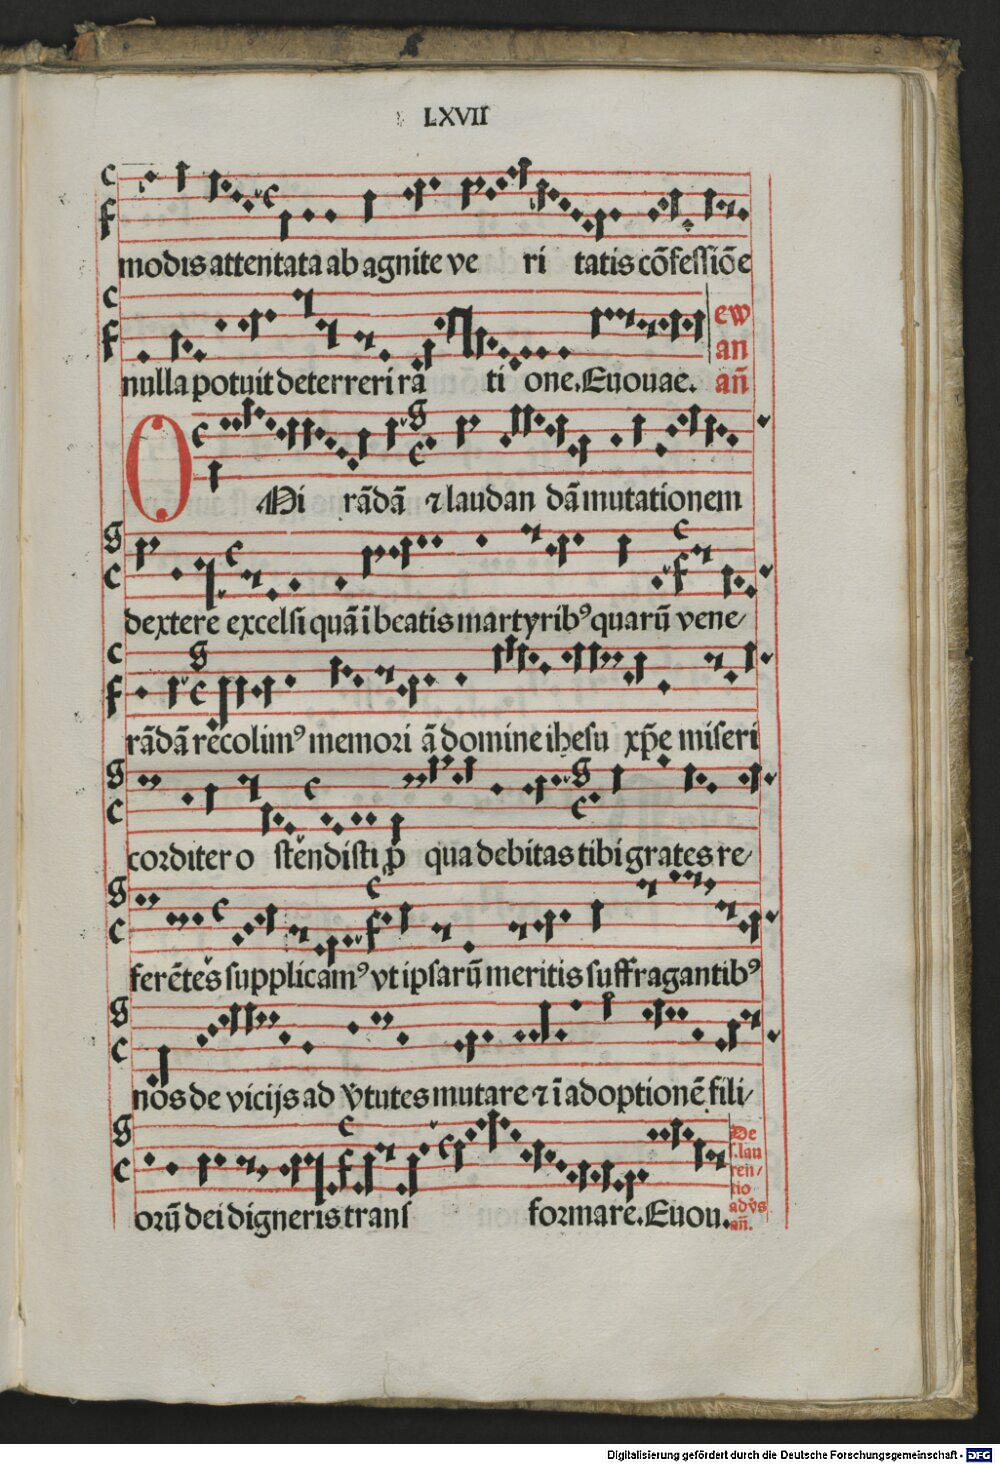 LXVII
modis attentata ab agnite ve ri tatis cōfessiōe
nulla potuit deterreri rā ti one. Euouae.
ew
an
an̄
O Mi rādā ⁊ laudan dā mutationem
dextere excelsi quā ī beatis martyribꝰ quarū vene/
rādā recolimꝰ memori ā domine ihesu xp̄e miseri
corditer o stendisti ꝓ qua debitas tibi grates re/
ferētes supplicamꝰ vt ipsarū meritis suffragantibꝰ
nos de vicijs ad v̓tutes mutare ⁊ ī adoptionē fili/
orū dei digneris trans formare. Euou.
De
s. lau
ren/
tio
ad v̓s
an̄.
Digitalisierung gefördert durch die Deutsche Forschungsgemeinschaft - DFG